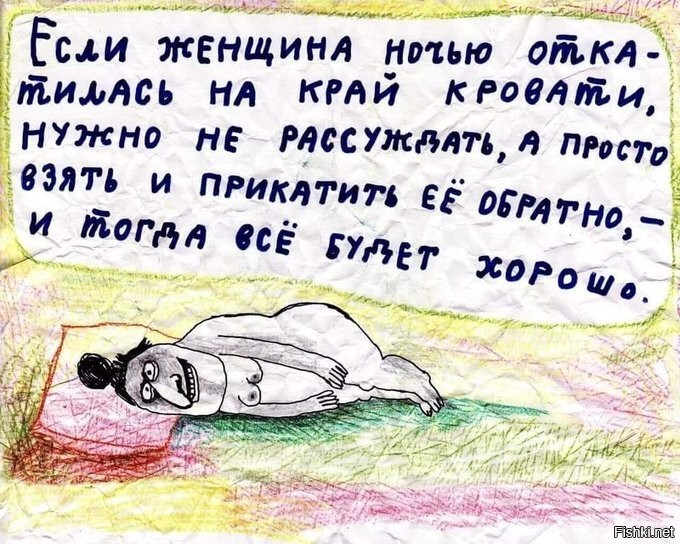 Если женщина ночью отка-
тилась на край кровати,
нужно не рассуждать, а просто
взять и прикатить её обратно, –
и тогда всё будет хорошо.
Fishki.net